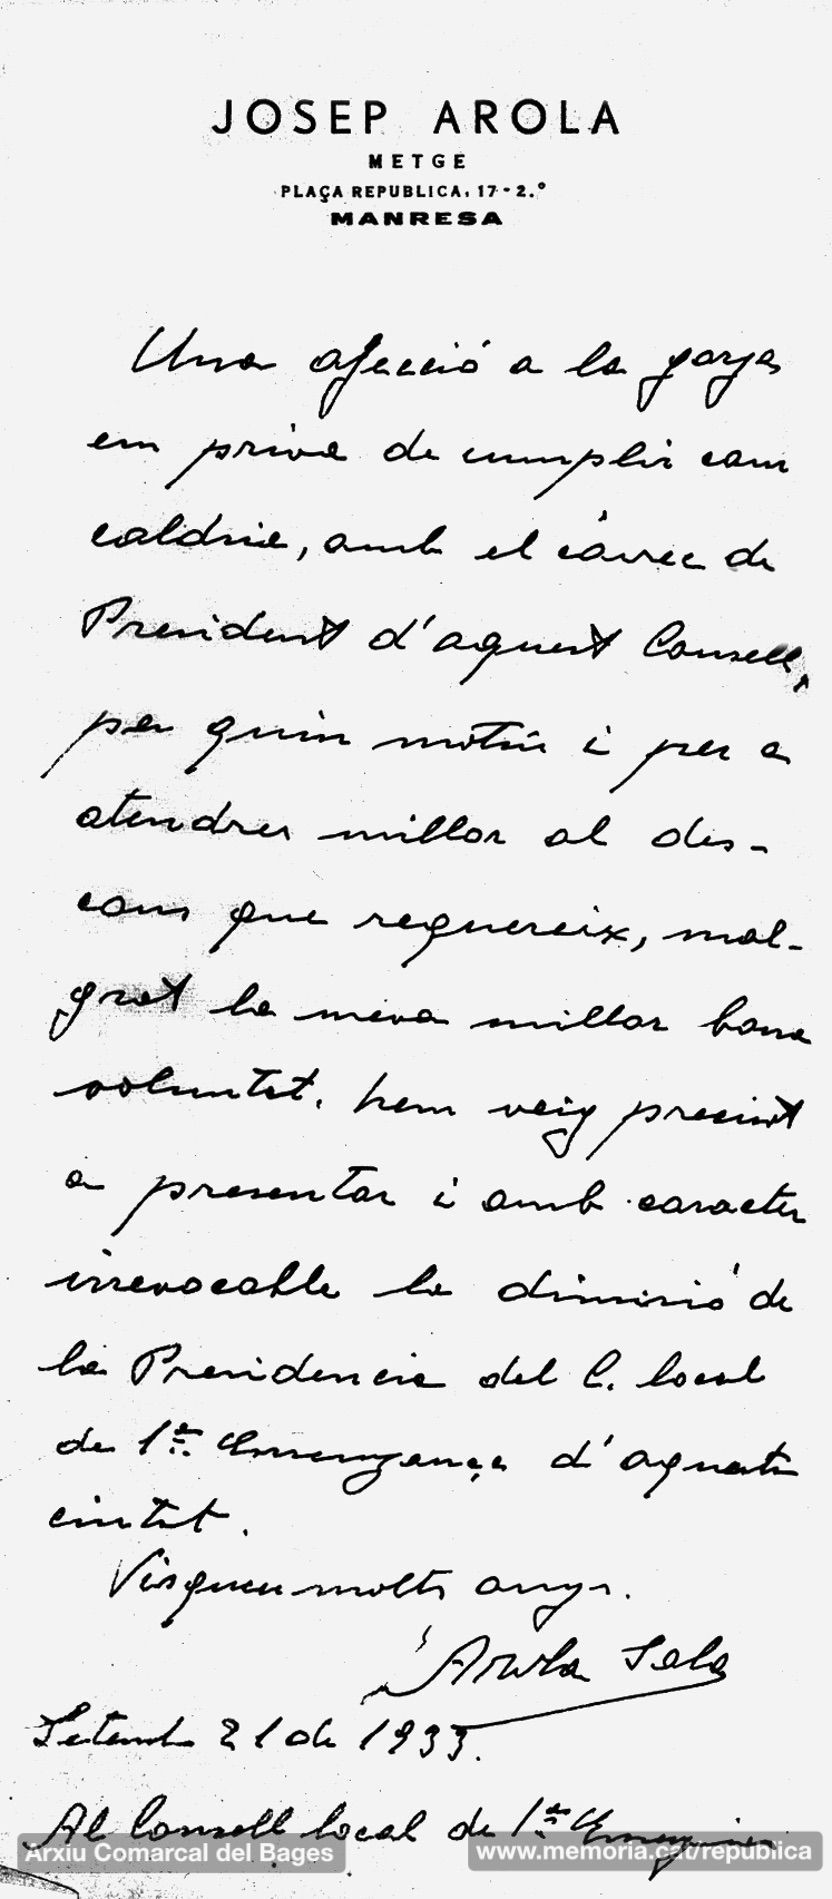 JOSEP AROLA
METGE
PLAÇA REPUBLICA, 17-2.º
MANRESA
Una afecció a la gorja
em priva de cumplir com
caldria, amb el càrrec de
President d'aquest Consell,
per quin motiu i per a
atendrer millor al des-
cans que requereix, mal-
grat la meva millor bona
voluntat. hem veig precisat
a presentar i amb caracter
irrevocable la dimisió de
la Presidencia del C. local
de 1ª. Ensenyança d'aquesta
ciutat.
Visqueu molts anys.
Arola Sala
Setemb 21 de 1933.
Al Consell local de 1ª
Arxiu Comarcal del Bages
www.memoria.cat/republica